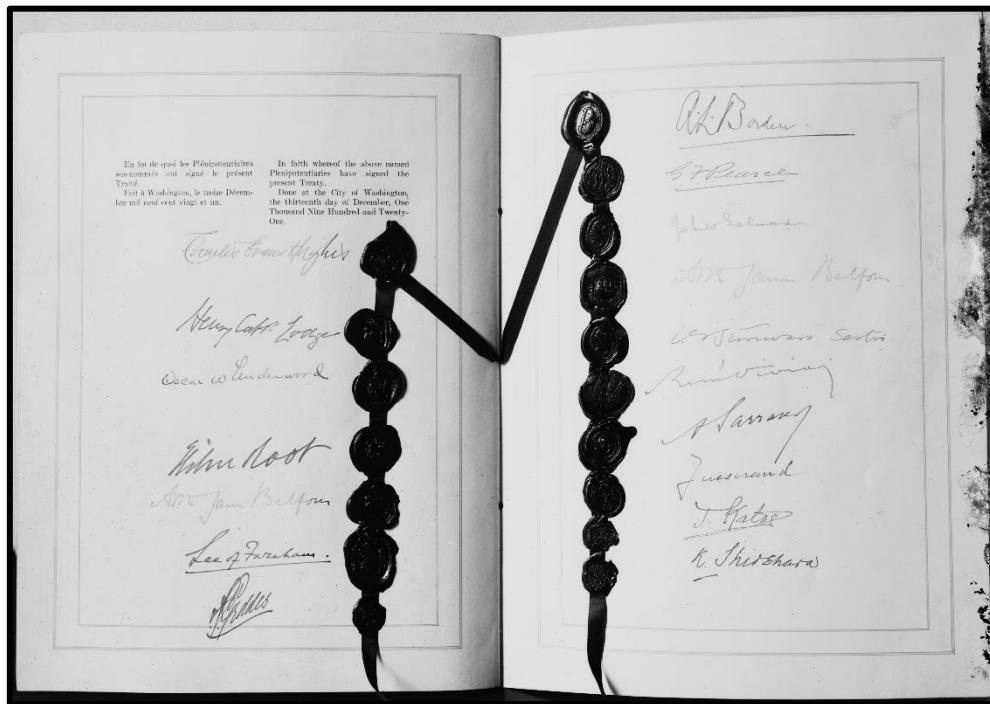 En foi de quoi les Plénipotentiaires
sus-nommés ont signé le présent
Traité.
Fait à Washington, le treize Décem-
bre mil neuf cent vingt et un.
In faith whereof the above named
Plenipotentiaries have signed the
present Treaty.
Done at the City of Washington,
the thirteenth day of December, One
Thousand Nine Hundred and Twenty-
One.
Charles Evans Hughes
Henry Cabot Lodge
Oscar W Underwood
Elihu Root
Arthur James Balfour
Lee of Fareham.
A Geddes
R. L. Borden.
G F Pearce
John W Salmond
Arthur James Balfour
V S Srinivasa Sastri
René Viviani
A Sarraut
Jusserand
T. Kato
K. Shidehara